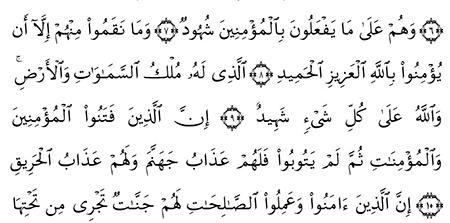 ﴿٦﴾ وَهُمْ عَلَىٰ مَا يَفْعَلُونَ بِٱلْمُؤْمِنِينَ شُهُودٌ ﴿٧﴾ وَمَا نَقَمُوا۟ مِنْهُمْ إِلَّآ أَن
يُؤْمِنُوا۟ بِٱللَّهِ ٱلْعَزِيزِ ٱلْحَمِيدِ ﴿٨﴾ ٱلَّذِى لَهُۥ مُلْكُ ٱلسَّمَـٰوَٰتِ وَٱلْأَرْضِ ۚ
وَٱللَّهُ عَلَىٰ كُلِّ شَىْءٍ شَهِيدٌ ﴿٩﴾ إِنَّ ٱلَّذِينَ فَتَنُوا۟ ٱلْمُؤْمِنِينَ
وَٱلْمُؤْمِنَـٰتِ ثُمَّ لَمْ يَتُوبُوا۟ فَلَهُمْ عَذَابُ جَهَنَّمَ وَلَهُمْ عَذَابُ ٱلْحَرِيقِ
﴿١٠﴾ إِنَّ ٱلَّذِينَ ءَامَنُوا۟ وَعَمِلُوا۟ ٱلصَّـٰلِحَـٰتِ لَهُمْ جَنَّـٰتٌ تَجْرِى مِن تَحْتِهَا